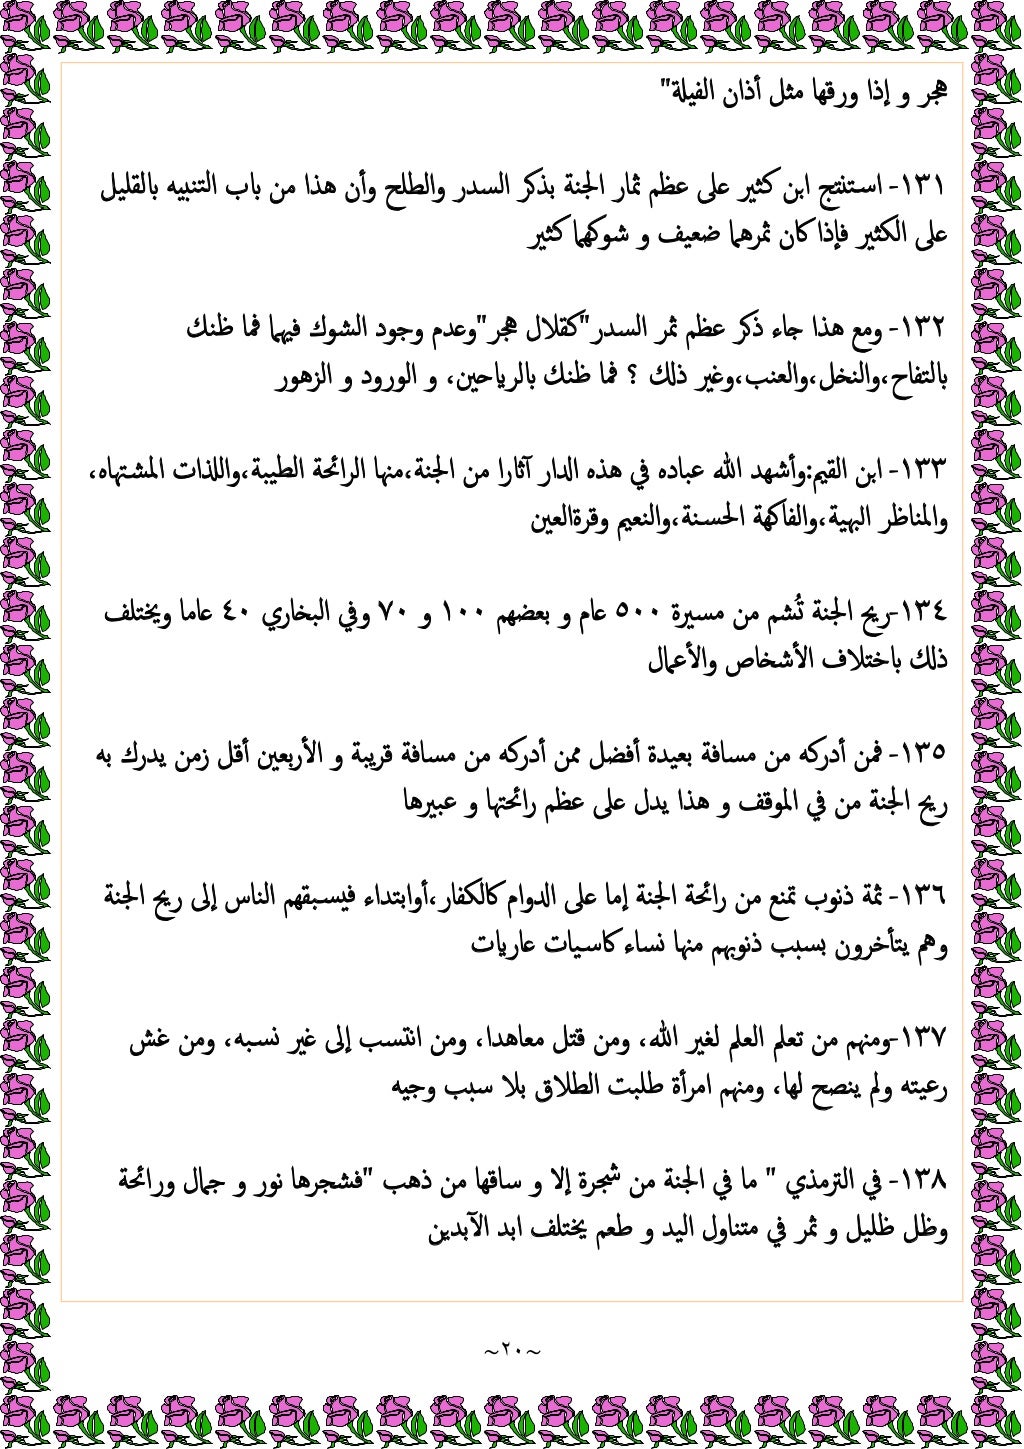 هجر و إذا ورقها مثل أذان الفيلة"
١٣١- استنتج ابن كثير على عظم ثمار الجنة بذكر السدر والطلح وأن هذا من باب التنبيه بالقليل
على الكثير فإذا كان ثمرهما ضعيف و شوكهما كثير
١٣٢- ومع هذا جاء ذكر عظم ثمر السدر"كقلال هجر"وعدم وجود الشوك فيهما فما ظنك
بالتفاح،والنخل،والعنب،وغير ذلك ؟ فما ظنك بالرياحين، و الورود و الزهور
١٣٣- ابن القيم:وأشهد الله عباده في هذه الدار آثارا من الجنة،منها الرائحة الطيبة،واللذات المشتهاه،
والمناظر البهية،والفاكهة الحسنة،والنعيم وقرةالعين
١٣٤-ريح الجنة تُشم من مسيرة ٥٠٠ عام و بعضهم ١٠٠ و ٧٠ وفي البخاري ٤٠ عاما ويختلف
ذلك باختلاف الأشخاص والأعمال
١٣٥- فمن أدركه من مسافة بعيدة أفضل ممن أدركه من مسافة قريبة و الأربعين أقل زمن يدرك به
ريح الجنة من في الموقف و هذا يدل على عظم رائحتها و عبيرها
١٣٦- ثمة ذنوب تمنع من رائحة الجنة إما على الدوام كالكفار،أوابتداء فيسبقهم الناس إلى ريح الجنة
وهم يتأخرون بسبب ذنوبهم منها نساء كاسيات عاريات
١٣٧-ومنهم من تعلم العلم لغير الله، ومن قتل معاهدا، ومن انتسب إلى غير نسبه، ومن غش
رعيته ولم ينصح لها، ومنهم امرأة طلبت الطلاق بلا سبب وجيه
١٣٨- في الترمذي " ما في الجنة من شجرة إلا و ساقها من ذهب "فشجرها نور و جمال ورائحة
وظل ظليل و ثمر في متناول اليد و طعم يختلف ابد الآبدين
~٢٠~